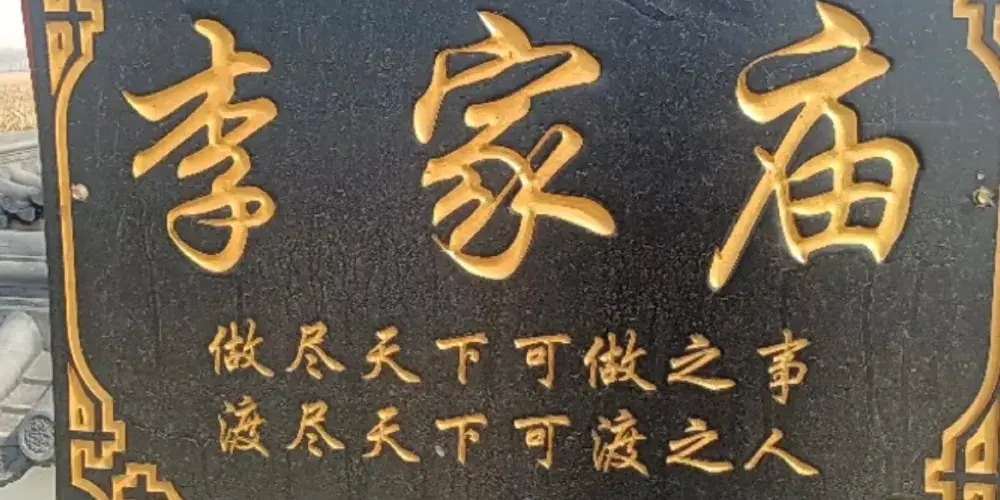 李家庙
做尽天下可做之事
渡尽天下可渡之人